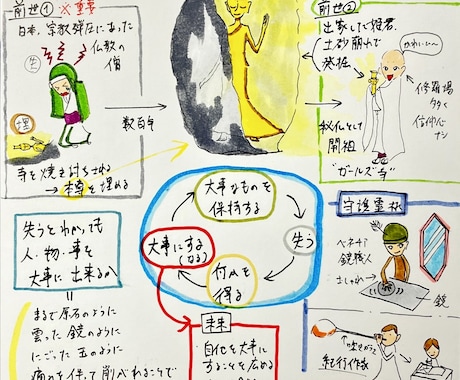 前世① ※重要
日本、宗教弾圧にあった
仏教の
僧
失
埋
寺を焼き討ちされる
→本尊を埋める
数百年
前世②
出家した姫君
土砂崩れで
発掘
かわいい〜
修羅場
多く
信仰心
ナシ
秘仏として
開組
"ガールズ寺"
大事なものを
保持する
失う
何かを
得る
大事にする
(なる)
失うとわかっても
人・物・事を
大事に出来るか
まるで原石のように
曇った鏡のように
にごった玉のように
痛みを伴って削られることで
来世
自他を大事に
することを広める
守護霊
ベネチア
鏡職人
おしゃれ
鏡
紀行作家